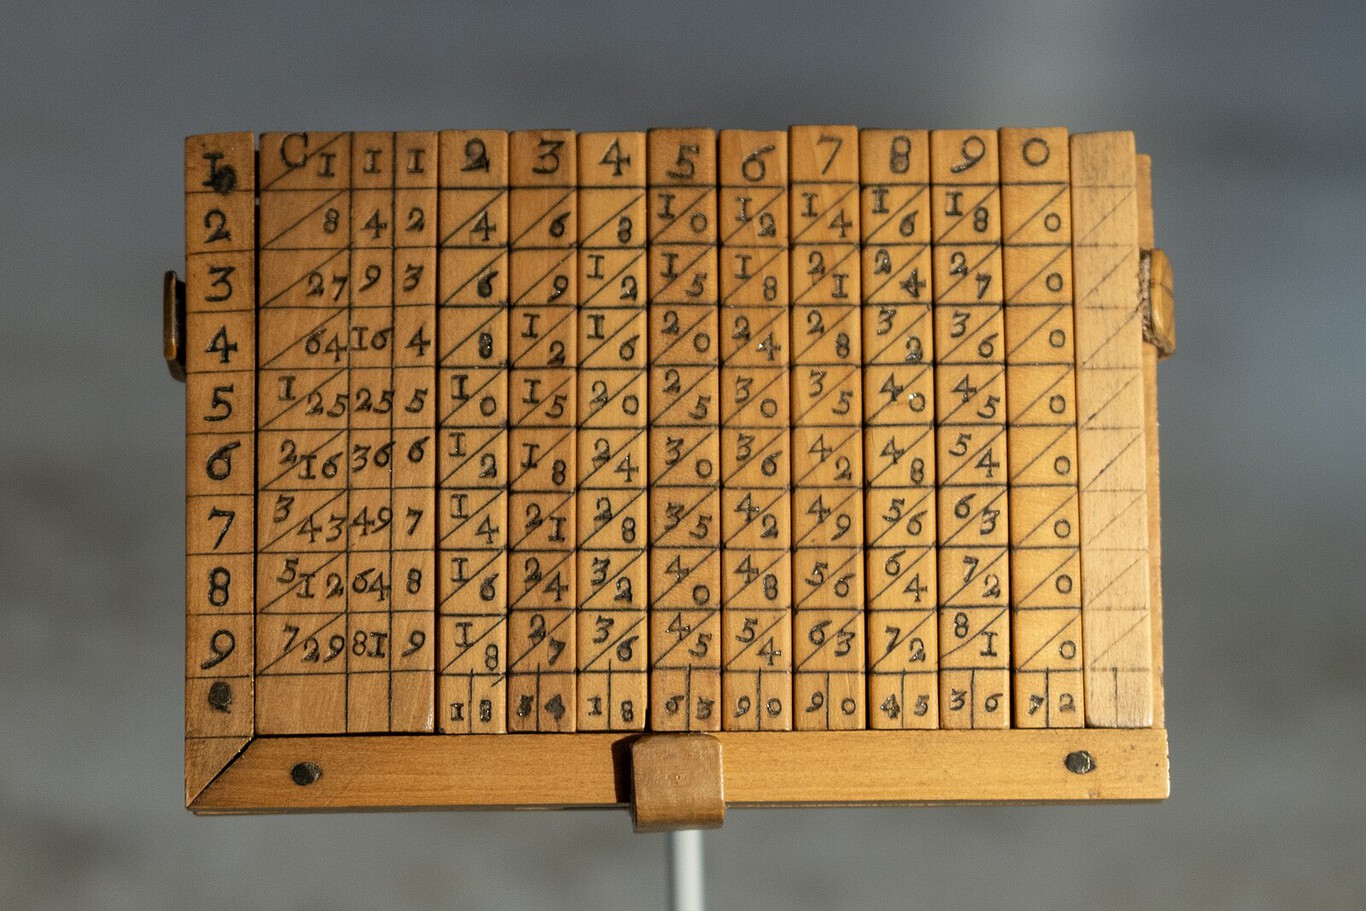 1 C 1 1 1 2 3 4 5 6 7 8 9 0
2 8 4 2 4 6 8 1 0 1 2 1 4 1 6 1 8 0
3 27 9 3 6 9 1 2 1 5 1 8 2 1 2 4 2 7 0
4 64 16 4 8 1 2 1 6 2 0 2 4 2 8 3 2 3 6 0
5 1 25 25 5 1 0 1 5 2 0 2 5 3 0 3 5 4 0 4 5 0
6 2 16 36 6 1 2 1 8 2 4 3 0 3 6 4 2 4 8 5 4 0
7 3 43 49 7 1 4 2 1 2 8 3 5 4 2 4 9 5 6 6 3 0
8 5 12 64 8 1 6 2 4 3 2 4 0 4 8 5 6 6 4 7 2 0
9 7 29 81 9 1 8 2 7 3 6 4 5 5 4 6 3 7 2 8 1 0
1 8 4 1 8 6 3 9 0 9 0 4 5 3 6 7 2